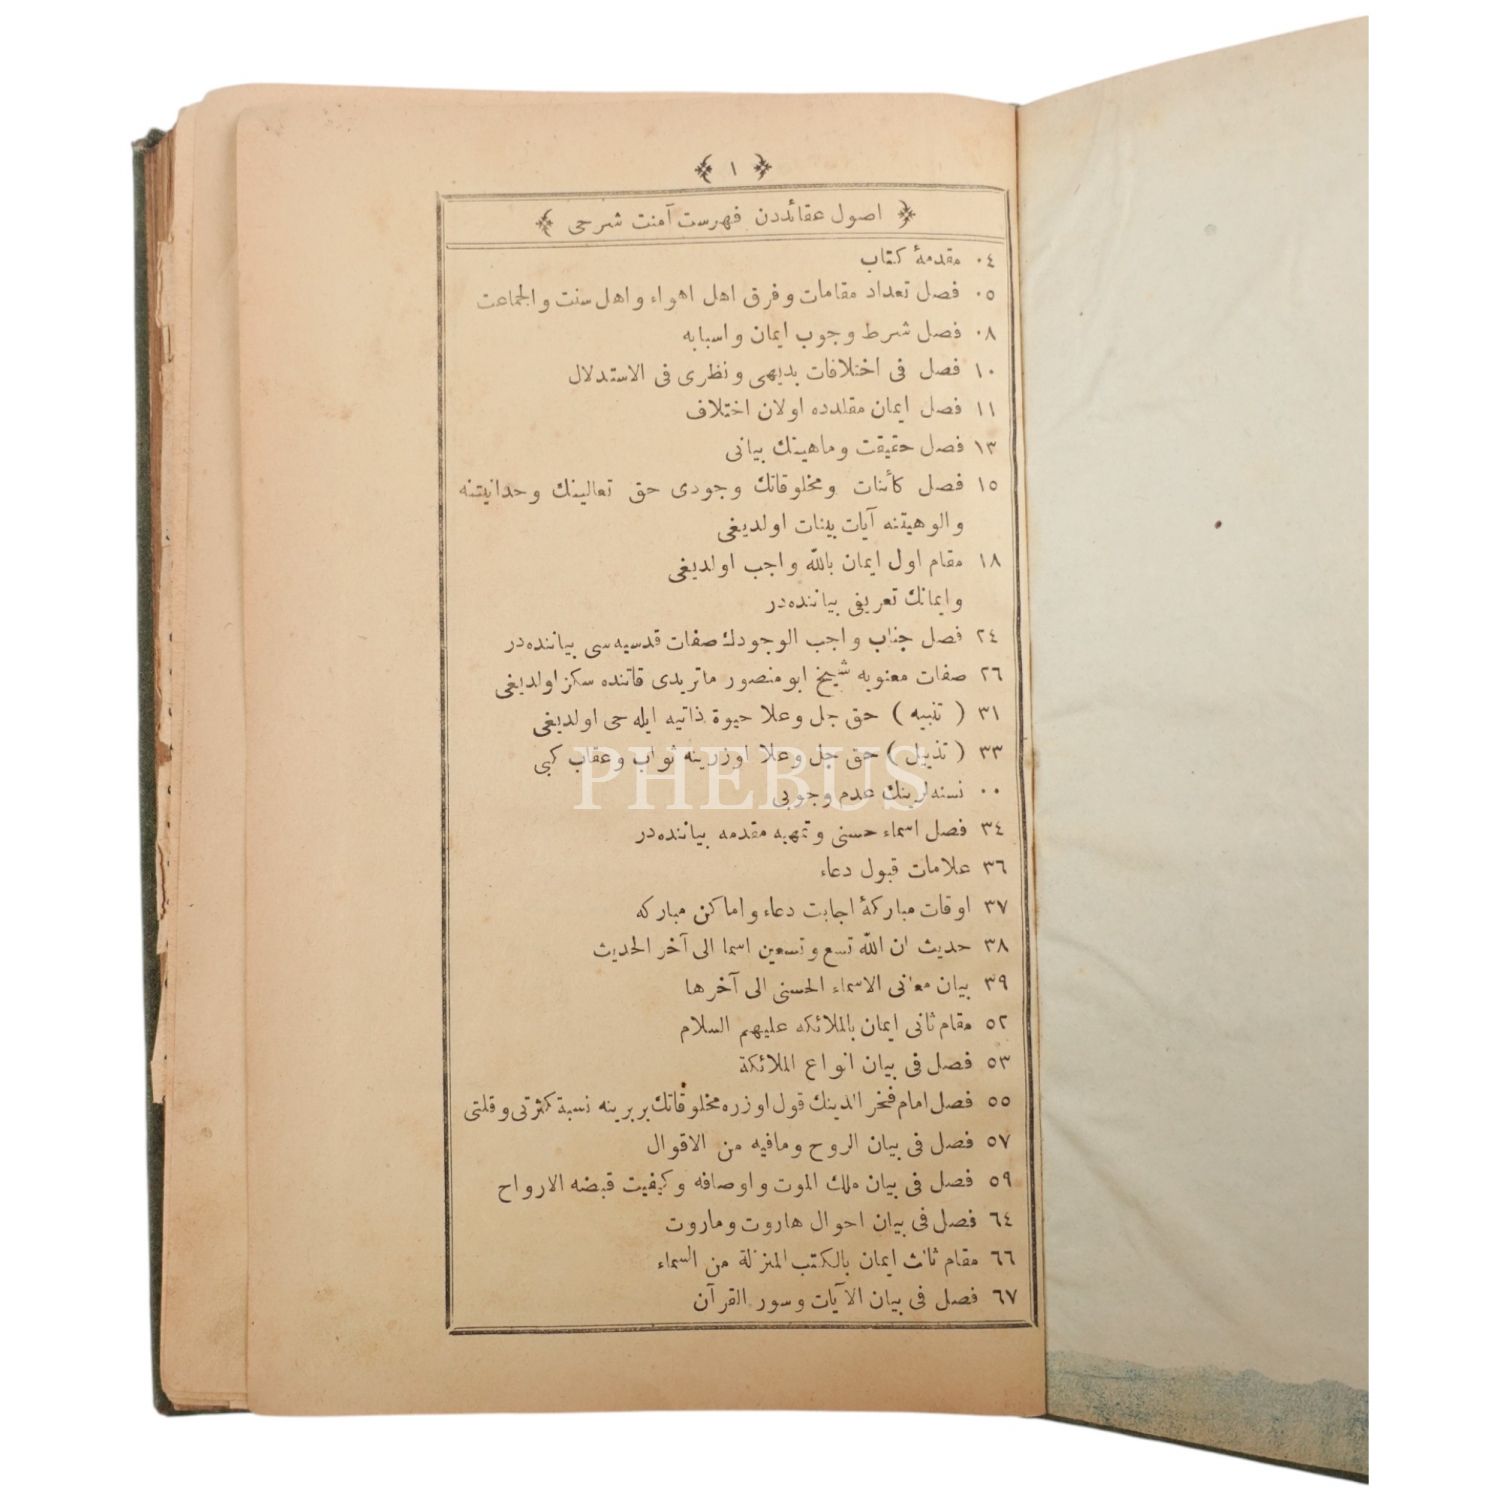 ١
اصول عقائددن فهرست آمنت شرحى
٠٤ مقدمۀ كتاب
٠٥ فصل تعداد مقامات و فرق اهل اهواء و اهل سنت والجماعت
٠٨ فصل شرط وجوب ايمان و اسبابه
١٠ فصل فى اختلافات بديهى و نظرى فى الاستدلال
١١ فصل ايمان مقلدده اولان اختلاف
١٣ فصل حقيقت و ماهيتك بيانى
١٥ فصل كائنات و مخلوقاتك وجودى حق تعالينك وحدانيتنه
والوهيتنه آيات بينات اولديغى
١٨ مقام اول ايمان بالله واجب اولديغى
وايمانك تعريفى بياننده در
٢٤ فصل جناب واجب الوجودك صفات قدسيه سى بياننده در
٢٦ صفات معنويه شيخ ابو منصور ماتريدى قاتنده سكز اولديغى
٣١ ( تنبيه ) حق جل وعلا حيوة ذاتيه ايله حى اولديغى
٣٣ ( تذييل ) حق جل وعلا اوزرينه ثواب وعقاب كبى
٠٠ نسنه لرينك عدم وجوبى
PHEBUS
٣٤ فصل اسماء حسنى و تمهيه مقدمه بياننده در
٣٦ علامات قبول دعاء
٣٧ اوقات مباركۀ اجابت دعاء و اماكن مباركه
٣٨ حديث ان الله تسع وتسعين اسما الى آخر الحديث
٣٩ بيان معانى الاسماء الحسنى الى آخرها
٥٢ مقام ثانى ايمان بالملائكه عليهم السلام
٥٣ فصل فى بيان انواع الملائكة
٥٥ فصل امام فخر الدينك قول اوزره مخلوقاتك بربرينه نسبة كثرتى و قلتى
٥٧ فصل فى بيان الروح و مافيه من الاقوال
٥٩ فصل فى بيان ملك الموت و اوصافه و كيفيت قبضه الارواح
٦٤ فصل فى بيان احوال هاروت وماروت
٦٦ مقام ثالث ايمان بالكتب المنزلة من السماء
٦٧ فصل فى بيان الآيات وسور القرآن